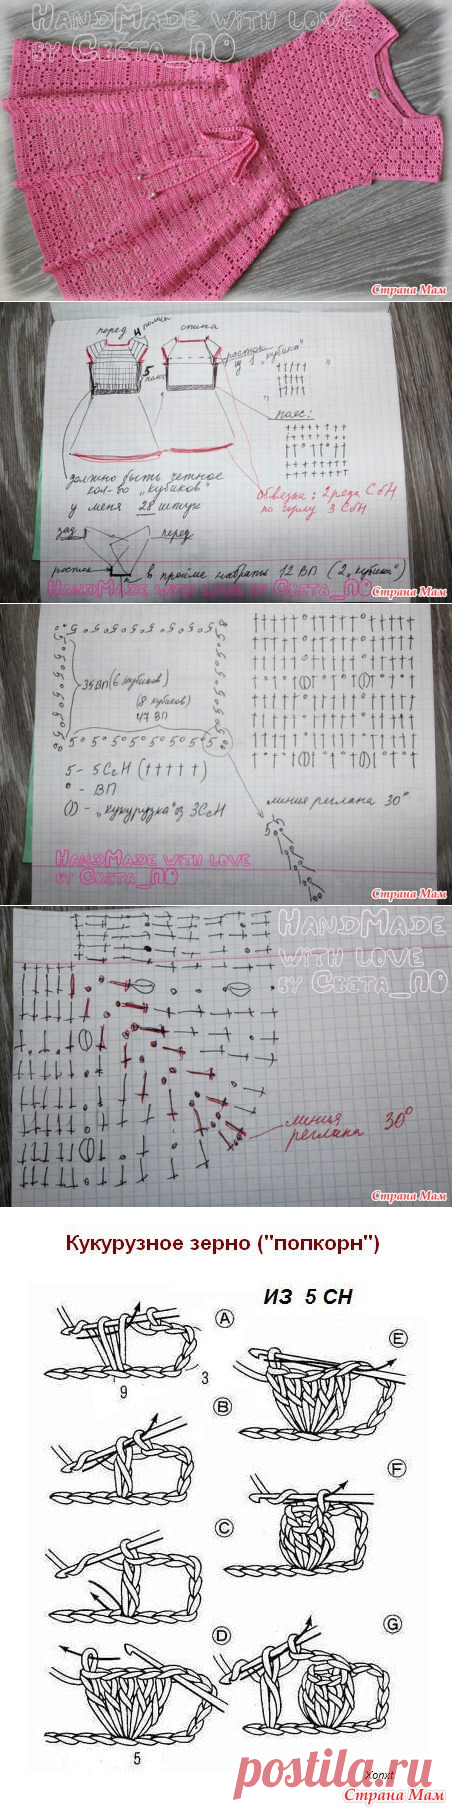 HandMade with love
by Света_ПО
Страна Мам
перед
4 полосы
спина
5 полос
росток
из 1 "кубика"
пояс:
должно быть четное
кол-во "кубиков"
у меня 28 штук
обвязка: 2 ряда СбН
по горлу 3 СбН
зад
перед
росток
в пройме набрать 12 ВП (2 "кубика")
HandMade with love by Света_ПО
Страна Мам
35 ВП (6 кубиков)
(8 кубиков)
47 ВП
5 - 5 СсН († † † † †)
° - ВП
- "кукурузка" из 3 СсН
линия реглана 30°
HandMade with love
by Света_ПО
Страна Мам
HandMade
with love
by Света_ПО
линия
реглана 30°
Страна Мам
Кукурузное зерно ("попкорн")
ИЗ 5 СН
A
E
9
3
B
F
C
D
G
5
Xonxt
postila.ru
Страна Мам